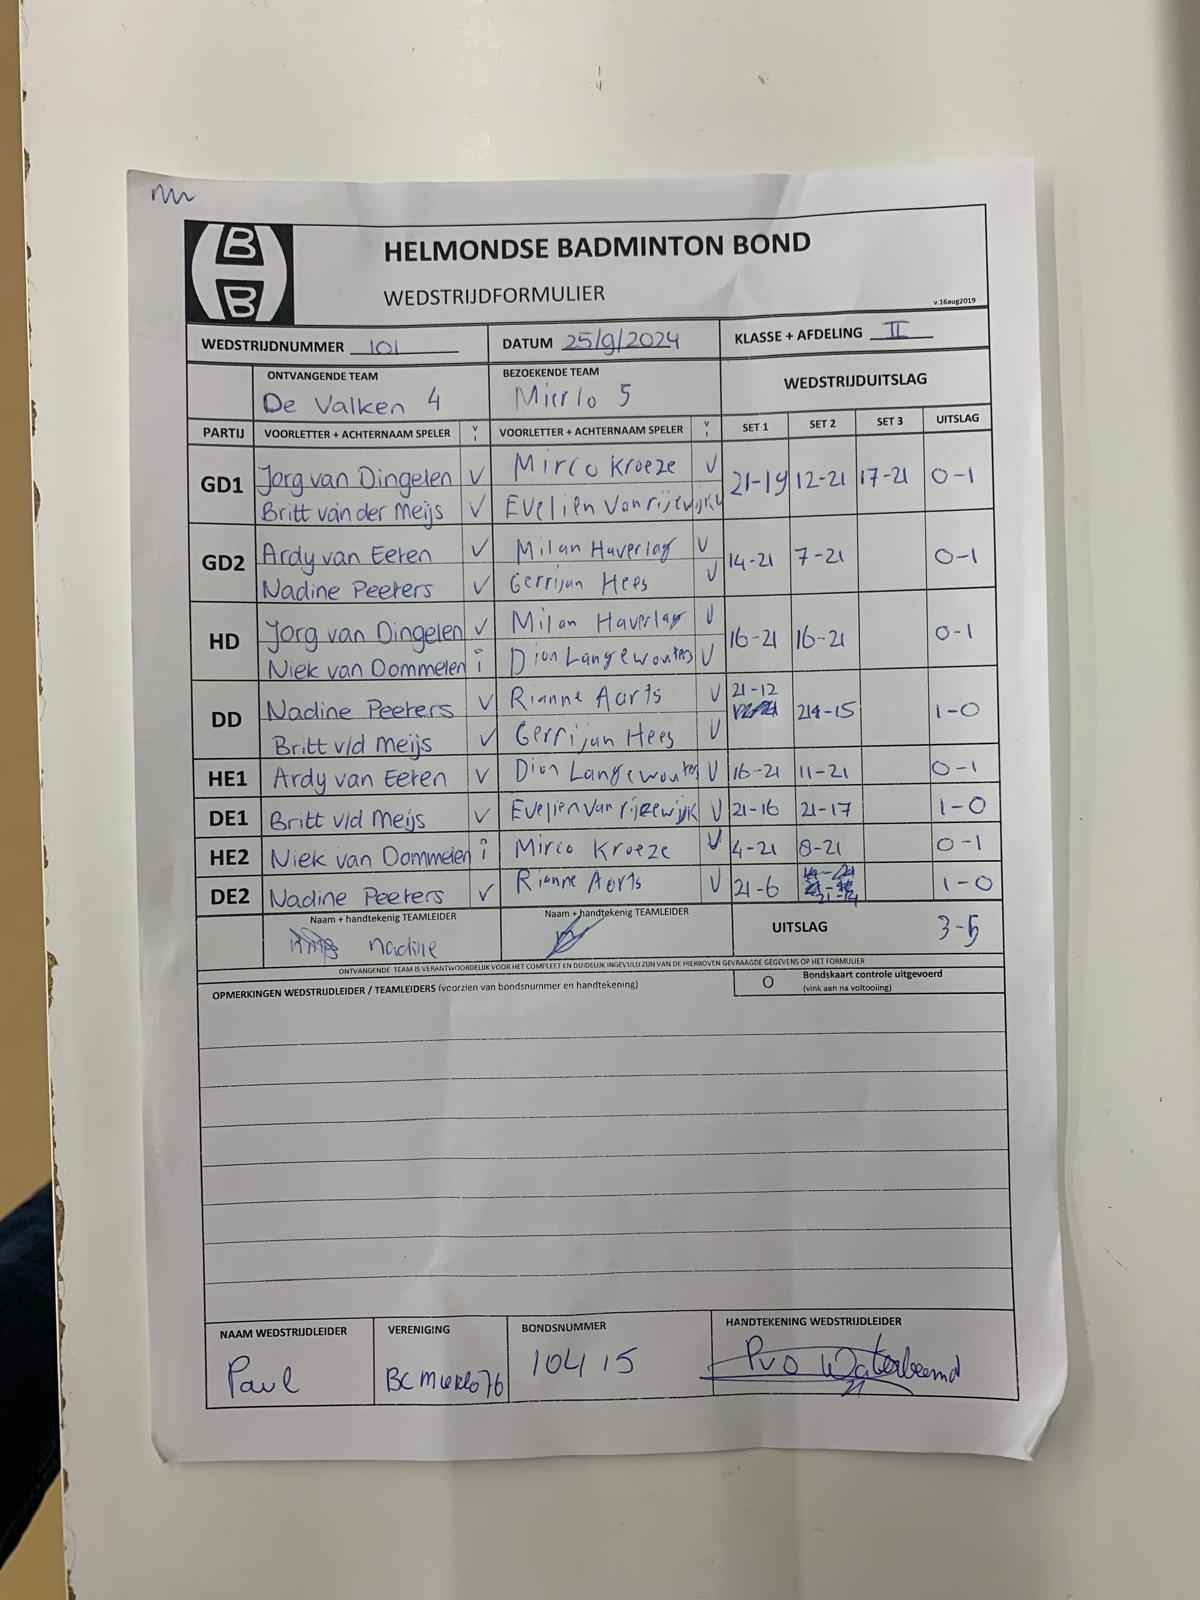 B
B
HELMONDSE BADMINTON BOND
WEDSTRIJDFORMULIER
v.16aug2019
WEDSTRIJDNUMMER 101 DATUM 25/9/2024 KLASSE + AFDELING II
ONTVANGENDE TEAM BEZOEKENDE TEAM WEDSTRIJDUITSLAG
De Valken 4 Mierlo 5
PARTIJ VOORLETTER + ACHTERNAAM SPELER V I VOORLETTER + ACHTERNAAM SPELER V I SET 1 SET 2 SET 3 UITSLAG
GD1 Jorg van Dingelen V Mirco Kroeze V 21-19 12-21 17-21 0-1
Britt van der Meijs V Evelien Van rijsewijk V
GD2 Ardy van Eeren V Milan Haverlag V 14-21 7-21 0-1
Nadine Peeters V Gerrijan Hees V
HD Jorg van Dingelen V Milan Haverlag V 16-21 16-21 0-1
Niek van Dommelen i Dion Langewouters V
DD Nadine Peeters V Rianne Aarts V 21-12 21-15 1-0
Britt v/d Meijs V Gerrijan Hees V
HE1 Ardy van Eeren V Dion Langewouters V 16-21 11-21 0-1
DE1 Britt v/d Meijs V Evelien Van rijsewijk V 21-16 21-17 1-0
HE2 Niek van Dommelen i Mirco Kroeze V 4-21 8-21 0-1
DE2 Nadine Peeters V Rianne Aarts V 21-6 1-0
Naam + handtekenig TEAMLEIDER Naam + handtekenig TEAMLEIDER UITSLAG 3-5
nadine
ONTVANGENDE TEAM IS VERANTWOORDELIJK VOOR HET COMPLEET EN DUIDELIJK INGEVULD ZIJN VAN DE HIERBOVEN GEVRAAGDE GEGEVENS OP HET FORMULIER
OPMERKINGEN WEDSTRIJDLEIDER / TEAMLEIDERS (voorzien van bondsnummer en handtekening) O Bondskaart controle uitgevoerd
(vink aan na voltooiing)
NAAM WEDSTRIJDLEIDER VERENIGING BONDSNUMMER HANDTEKENING WEDSTRIJDLEIDER
Paul BC mierlo 76 10415 PvD Waterbeemd